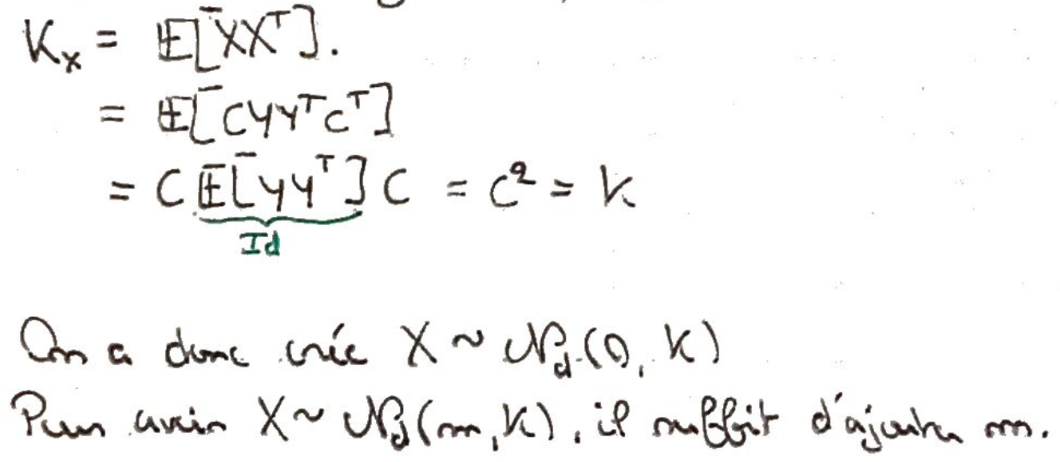 K_X = 𝔼[XXᵀ].
= 𝔼[CYYᵀCᵀ]
= C𝔼[YYᵀ]C = C² = K
Id
On a donc crée X ~ 𝒩_d(0, K)
Pour avoir X ~ 𝒩_d(m, K), il suffit d'ajouter m.